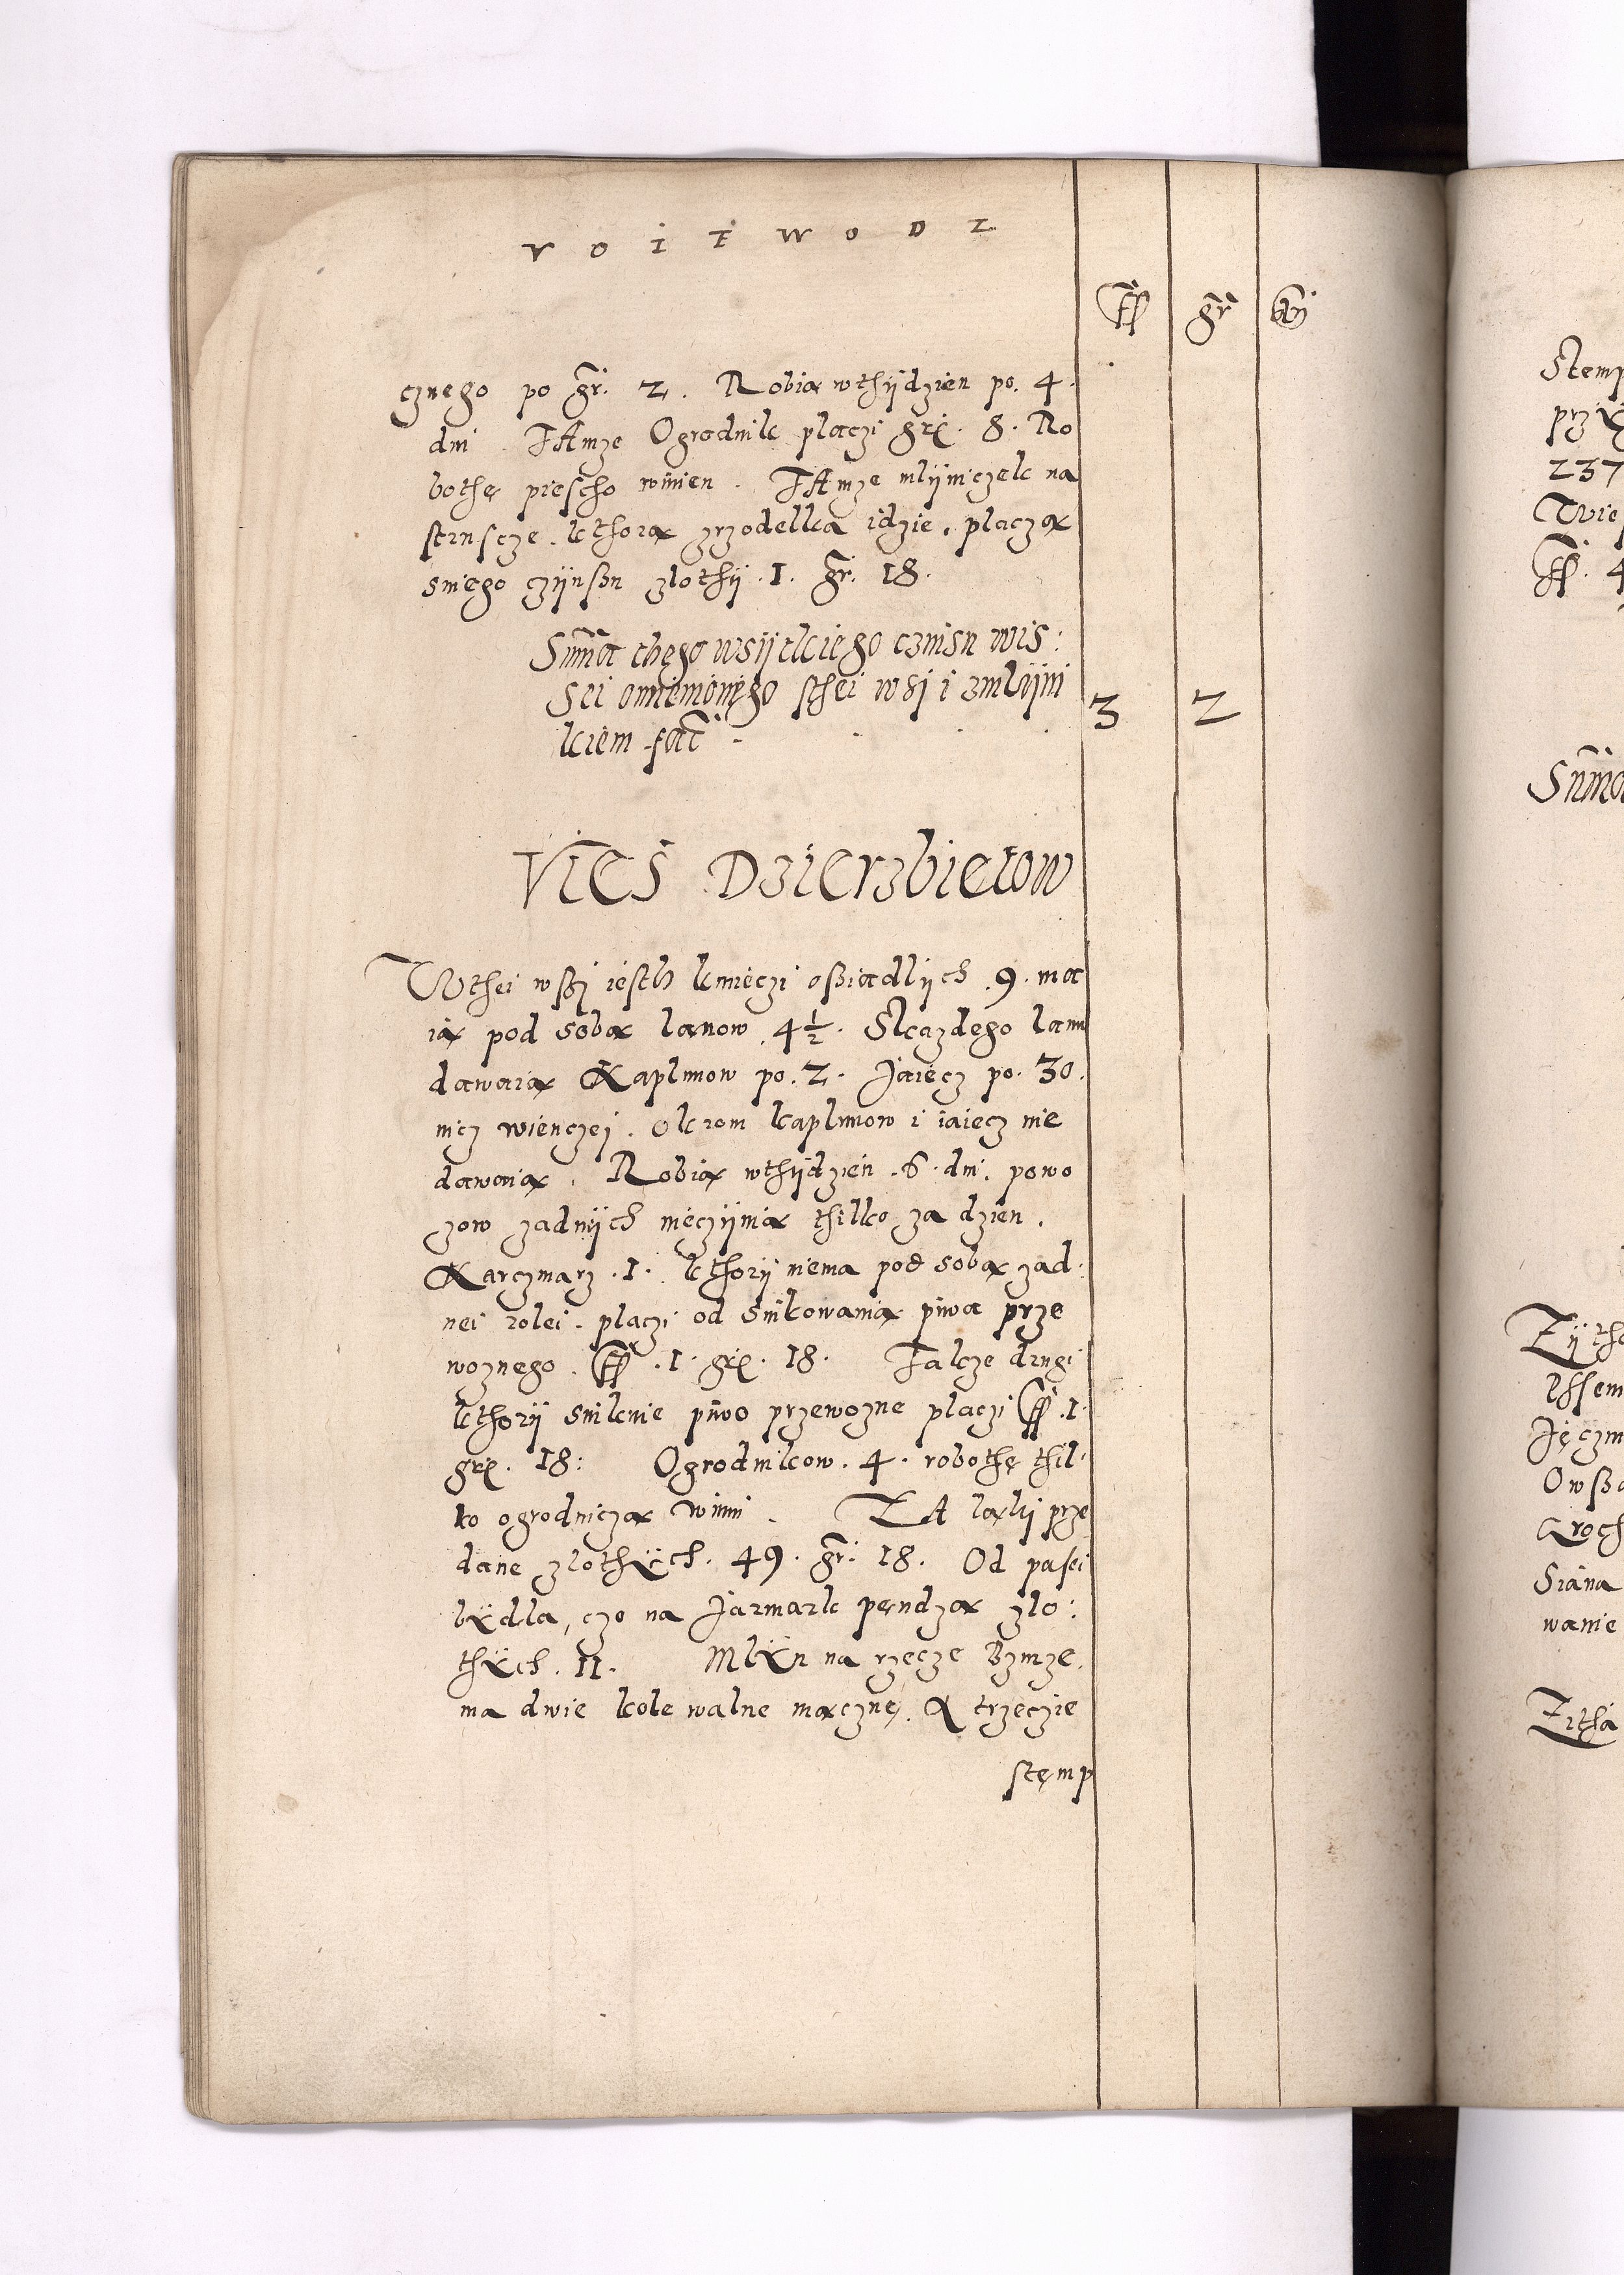 V O I T W O D Z
fl gr đ
cznego po gr. 2. Robią wthÿdzien po. 4.
dni. TAmze Ogrodnik placzi grȝ. 8. Ro
bothę pieścho winien. TAmze mlÿniczek na
struscze. kthorą zrzodełka idzie. placzą
sniego czÿnßu zlothÿ. 1. gr. 18.
Suma thęgo wsÿtkiego czinsu wis:
sei omiemionęgo sthei wsi i zmlÿni
kiem facit 3 2
VIES Dzierzbietow
Wthei wßi iesth kmieczi oßiadlÿch. 9. ma
ią pod sobą lanow. 4½. Skazdego lanu
dawaią Kaplunow po. 2. Jaiecz po. 30.
nicz wienczej. okrom kaplunow i iaiecz nie
dawaią. Robią wthÿdzien. 6. dni. powo
zow zadnÿch nieczÿnią thilko za dzien.
Karczmarz. 1. kthorÿ niema pod sobą zad:
nei rolei. placzi od sinkowania piwa prze
woznego. fl. 1. grȝ. 18. Takze drugi
kthorÿ sinkuie piwo przewozne placzi fl. 1.
grȝ. 18: Ogrodnikow. 4. robothę thil:
ko ogrodniczą winni. ZA ląki prze
dane zlothÿch. 49. gr. 18. Od pasei
bÿdla, czo na Jarmark pęndzą zlo:
thÿch. 11. Mlÿn na rzecze Bzurze.
ma dwie kole walne mączne. A trzeczie
stęmp